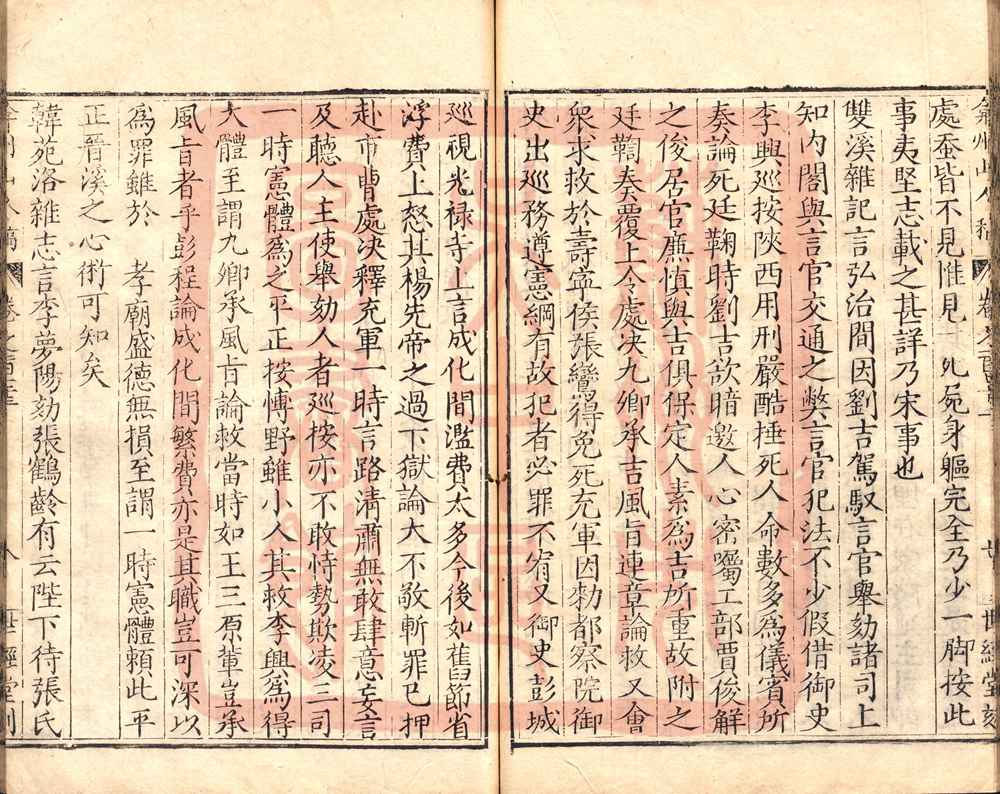 弇州山人稿 卷之百 世經堂刻
處蚕皆不見惟見一死屍身軀完全乃少一脚按此
事夷堅志載之甚詳乃宋事也
雙溪雜記言弘治間因劉吉駕馭言官舉劾諸司上
知内閣與言官交通之弊言官犯法不少假借御史
李興巡按陝西用刑嚴酷捶死人命數多爲儀賓所
奏論死廷鞠時劉吉欲暗邀人心密囑工部賈俊解
之俊居官廉慎與吉俱保定人素爲吉所重故附之
廷鞫奏覆上令處決九卿承吉風旨連章論救又會
衆求救於壽寧侯張巒得免死充軍因勑都察院御
史出巡務遵憲綱有故犯者必罪不宥又御史彭城
巡視光禄寺上言成化間濫費太多今後如舊節省
浮費上怒其楊先帝之過下獄論大不敬斬罪已押
赴市曹處决釋充軍一時言路清肅無敢肆意妄言
及聽人主使舉劾人者巡按亦不敢恃勢欺凌三司
一時憲體爲之平正按慱野雖小人其救李興爲得
大體至謂九卿承風旨論救當時如王三原輩豈承
風旨者乎彭程論成化間繁費亦是其職豈可深以
爲罪雖於 孝廟盛德無損至謂一時憲體頼此平
正晉溪之心術可知矣
韓苑洛雜志言李夢陽劾張鶴齡有云陛下待張氏
世經堂刻